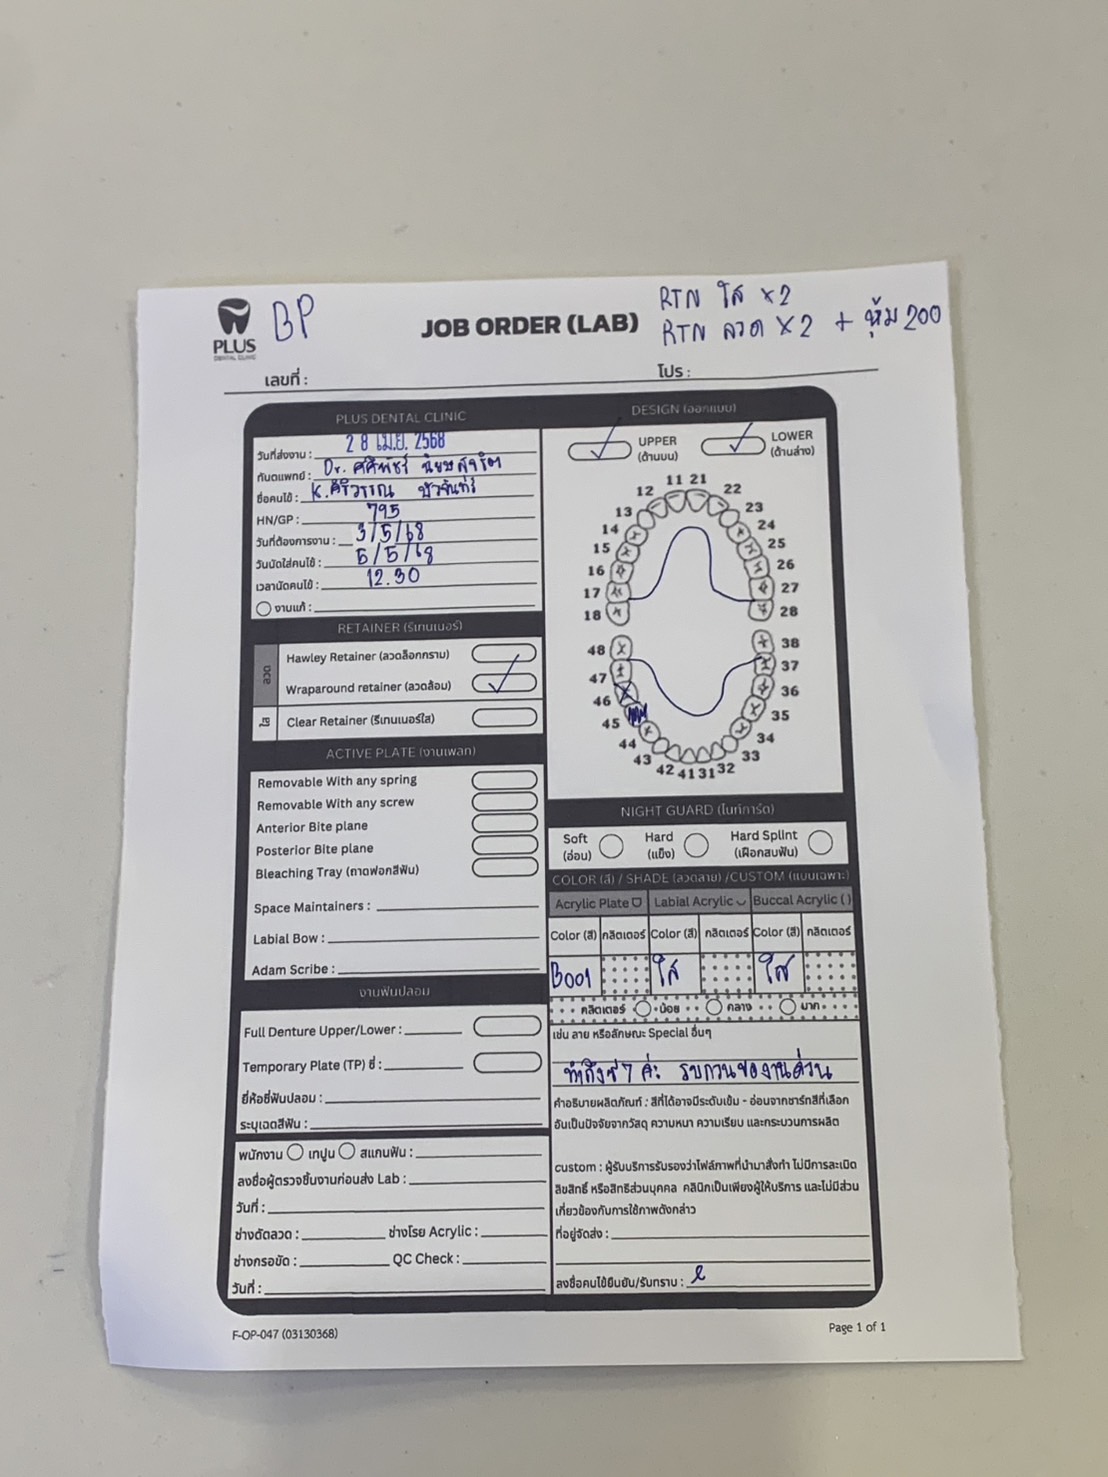 PLUS
DENTAL CLINIC
BP
JOB ORDER (LAB)
RTN ใส x2
RTN ลวด x2 + หุ้ม 200
เลขที่ :
โปร :
PLUS DENTAL CLINIC
วันที่ส่งงาน : 28 เม.ย. 2568
ทันตแพทย์ : Dr.
ชื่อคนไข้ : K. ศิริวรรณ บัวจันทร์
HN/GP : 795
วันที่ต้องการงาน : 3/5/68
วันนัดใส่คนไข้ : 5/5/68
เวลานัดคนไข้ : 12.30
งานแก้ :
RETAINER (รีเทนเนอร์)
ลวด
Hawley Retainer (ลวดล็อกกราม)
Wraparound retainer (ลวดล้อม)
ใส
Clear Retainer (รีเทนเนอร์ใส)
ACTIVE PLATE (งานเพลท)
Removable With any spring
Removable With any screw
Anterior Bite plane
Posterior Bite plane
Bleaching Tray (ถาดฟอกสีฟัน)
Space Maintainers :
Labial Bow :
Adam Scribe :
งานฟันปลอม
Full Denture Upper/Lower :
Temporary Plate (TP) ซี่ :
ยี่ห้อซี่ฟันปลอม :
ระบุเฉดสีฟัน :
พนักงาน เทปูน สแกนฟัน :
ลงชื่อผู้ตรวจชิ้นงานก่อนส่ง Lab :
วันที่ :
ช่างดัดลวด : ช่างโรย Acrylic :
ช่างกรอขัด : QC Check :
วันที่ :
DESIGN (ออกแบบ)
UPPER
(ด้านบน)
LOWER
(ด้านล่าง)
11 21
12 22
13 23
14 24
15 25
16 26
17 27
18 28
48 38
47 37
46 36
45 35
44 34
43 33
42 41 31 32
NIGHT GUARD (ไนท์การ์ด)
Soft
(อ่อน)
Hard
(แข็ง)
Hard Splint
(เฝือกสบฟัน)
COLOR (สี) / SHADE (ลวดลาย) /CUSTOM (แบบเฉพาะ)
Acrylic Plate Labial Acrylic Buccal Acrylic ( )
Color (สี) กลิตเตอร์ Color (สี) กลิตเตอร์ Color (สี) กลิตเตอร์
B001 ใส ใส
กลิตเตอร์ น้อย กลาง มาก
เช่น ลาย หรือลักษณะ Special อื่นๆ
ทำถึงซี่ 7 ค่ะ รบกวนของานด่วน
คำอธิบายผลิตภัณฑ์ : สีที่ได้อาจมีระดับเข้ม - อ่อนจากชาร์ทสีที่เลือก
อันเป็นปัจจัยจากวัสดุ ความหนา ความเรียบ และกระบวนการผลิต
custom : ผู้รับบริการรับรองว่าไฟล์ภาพที่นำมาสั่งทำ ไม่มีการละเมิด
ลิขสิทธิ์ หรือสิทธิส่วนบุคคล คลินิกเป็นเพียงผู้ให้บริการ และไม่มีส่วน
เกี่ยวข้องกับการใช้ภาพดังกล่าว
ที่อยู่จัดส่ง :
ลงชื่อคนไข้ยืนยัน/รับทราบ :
F-OP-047 (03130368)
Page 1 of 1